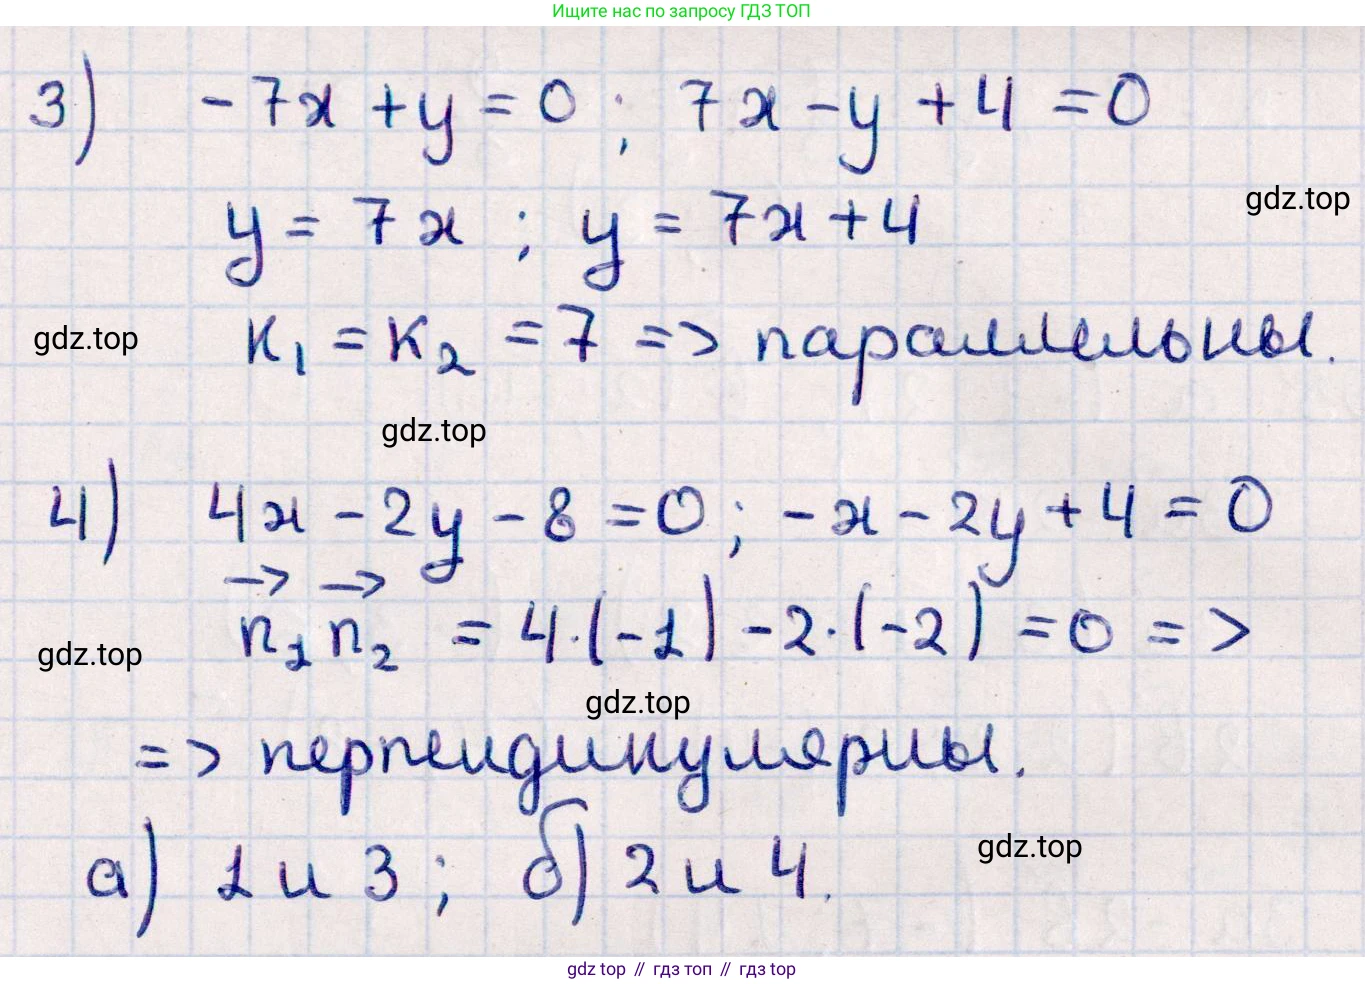 Ищите нас по запросу ГДЗ ТОП
3) -7x + y = 0 ; 7x - y + 4 = 0
gdz.top
y = 7x ; y = 7x + 4
gdz.top
k₁ = k₂ = 7 => параллельны.
gdz.top
4) 4x - 2y - 8 = 0 ; -x - 2y + 4 = 0
n₁→ n₂→ = 4·(-1) - 2·(-2) = 0 =>
gdz.top
gdz.top
=> перпендикулярны.
gdz.top
а) 1 и 3 ; б) 2 и 4.
gdz top // гдз топ // гдз top